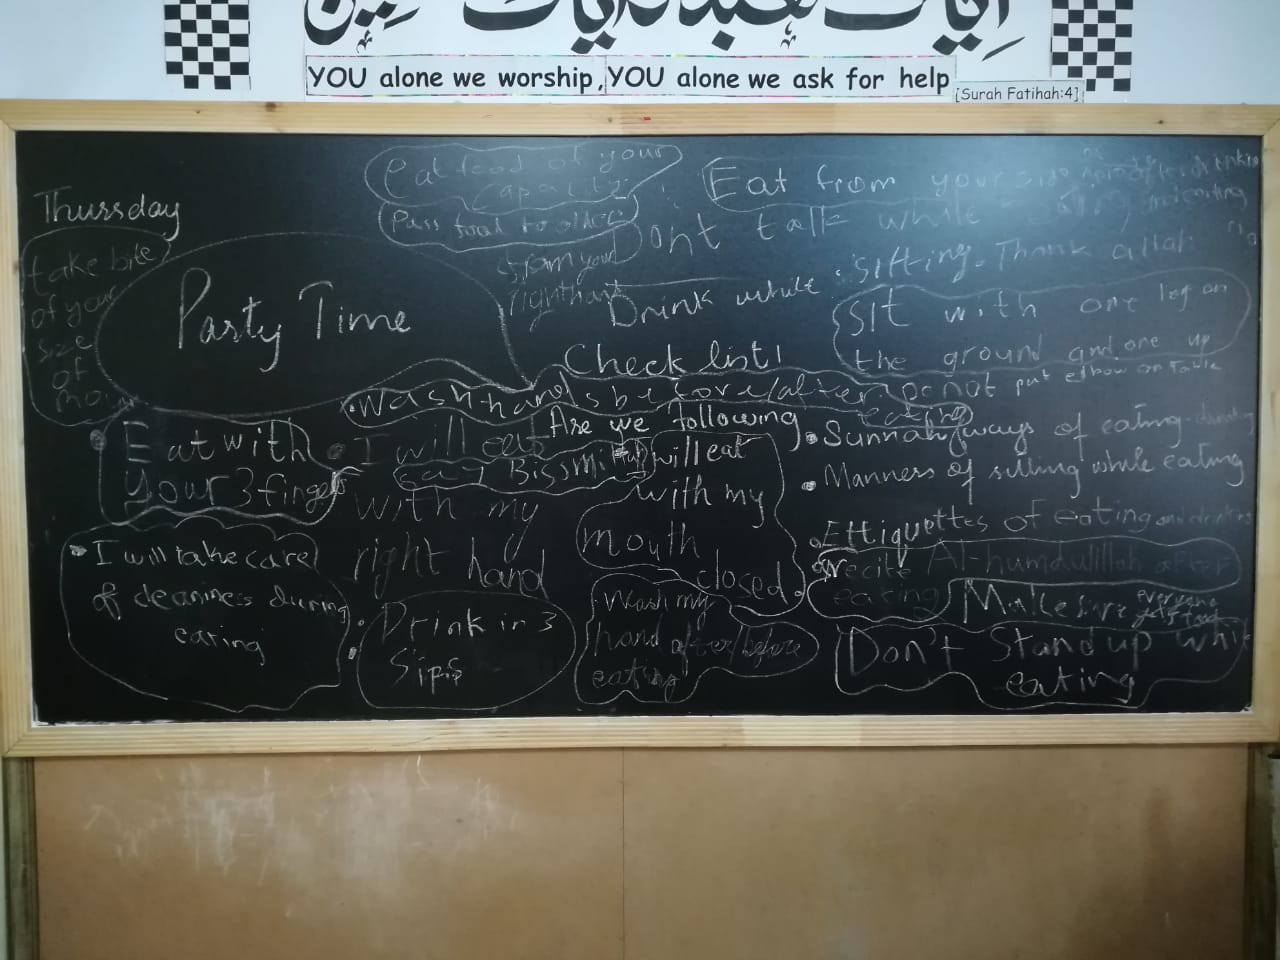 YOU alone we worship, YOU alone we ask for help
[Surah Fatihah:4]
Thursday
Party Time
take bite
of your
size
of
Eat food of your
capacity
Pass food to other
from your
right hand
Eat from your side
Dont talk while
Drink while sitting. Thank allah
Sit with one leg on
the ground and one up
Do not put elbow on Table
Check list!
Wash hands before/after eating
Are we following
Sunnah ways of eating
Manners of sitting while eating
Ettiquettes of eating and drinking
Eat with
your 3 fingers
I will eat
with my
right hand
say Bissmillah
I will eat
with my
mouth
closed
I will take care
of cleaniness during
eating
Drink in 3
Sips
Wash my
hand after/before
eating
recite Al-humdulillah after
eating
Make sure everyone
gets food
Don't Stand up while
eating